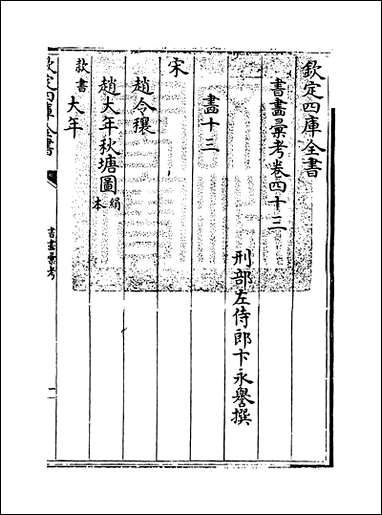 欽定四庫全書
書畫彙考卷四十三
刑部左侍郎卞永譽撰
畫十三
宋
趙令穰
趙大年秋塘圖絹本
欵書
大年
欽定四庫全書
書畫彙考